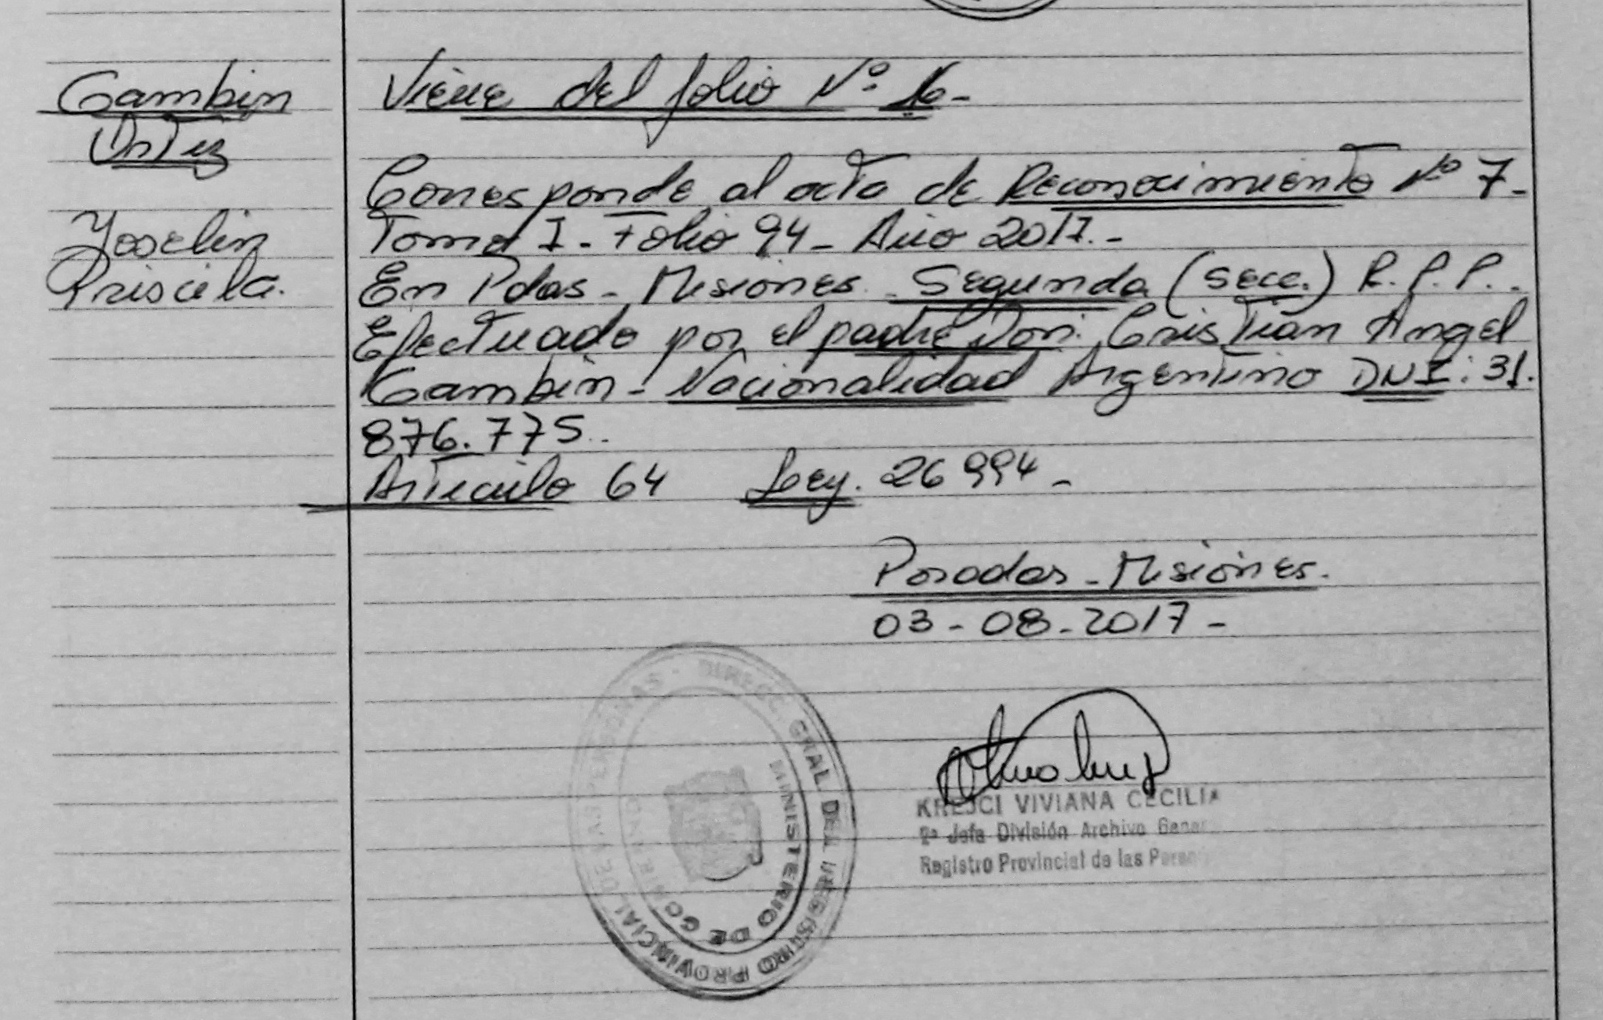 Gambin
Ortiz
Yoselin
Priscila.
Viene del folio Nº 16-
Corresponde al acta de Reconocimiento Nº 7-
Tomo I - Folio 94 - Año 2017.-
En Pdas - Misiones - Segunda (secc.) R.P.P..
Efectuado por el padre Don: Cristian Angel
Gambin - Nacionalidad Argentino DNI: 31.
876.775..
Artículo 64 Ley. 26994-
Posadas - Misiones.
03-08-2017-
KREJCI VIVIANA CECILIA
2ª Jefa División Archivo General
Registro Provincial de las
DIRECC. GRAL. DEL REGISTRO PROVINCIAL DE LAS PERSONAS -
MINISTERIO DE GOBIERNO